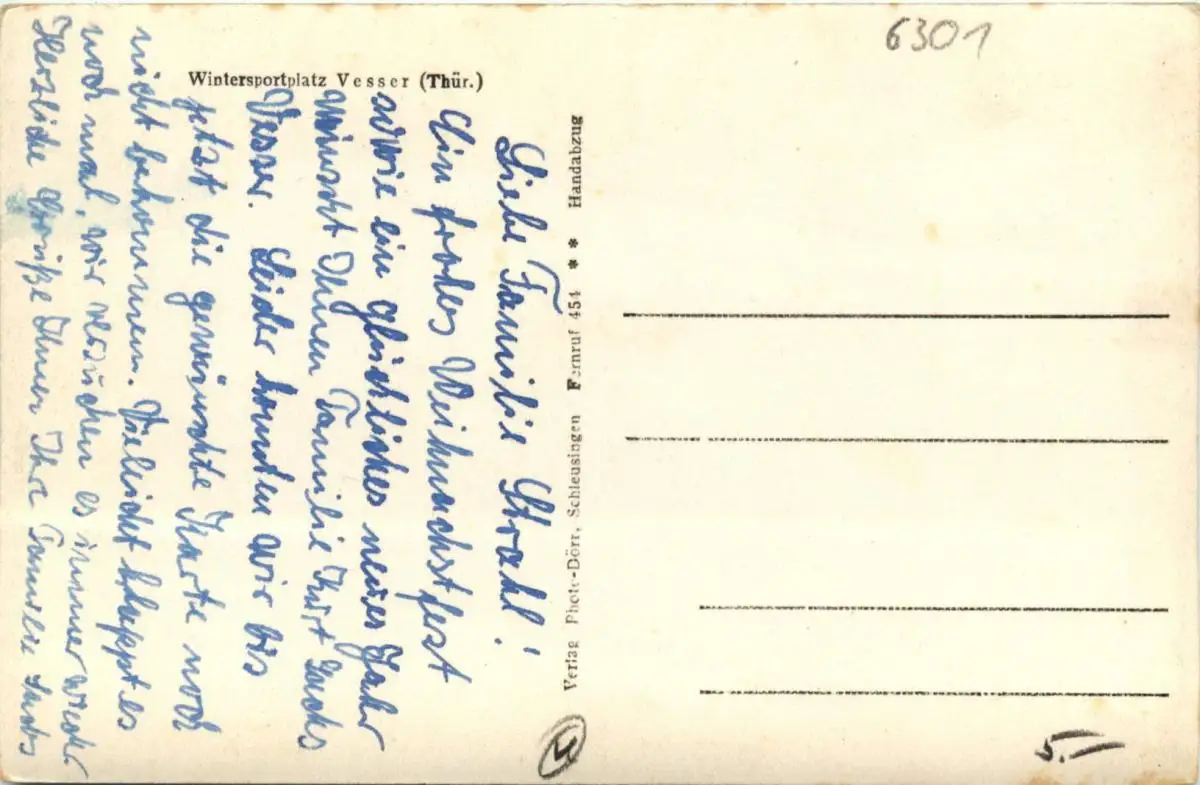 6301
Wintersportplatz Vesser (Thür.)
Liebe Familie Strahl!
Ein frohes Weihnachstfest
sowie ein glückliches neues Jahr
wünscht Ihnen Familie Kurt Sachs
Vesser. Leider konnten wir bis
jetzt die gewünschte Karte noch
nicht bekommen. Vieleicht kluppt es
noch mal, wir versuchen es immer wieder
Herzliche Grüße Ihnen Ihre Familie Sachs
Verlag Photo-Dörr, Schleusingen Fernruf 454 ** Handabzug
5.-